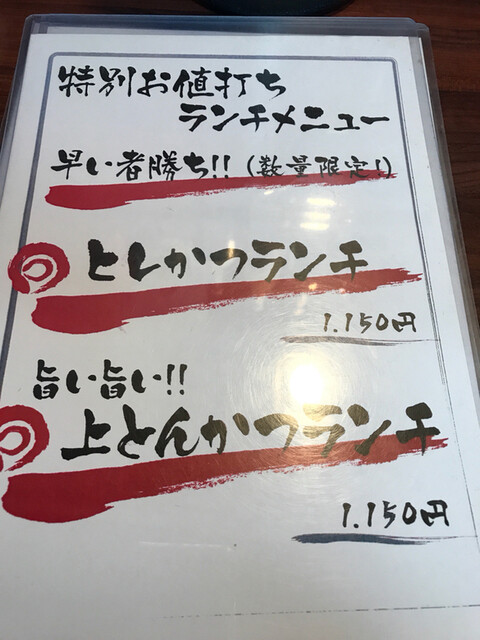 特別お値打ち
ランチメニュー
早い者勝ち!! (数量限定!)
としかつランチ
1.150円
旨い旨い!!
上とんかつランチ
1.150円